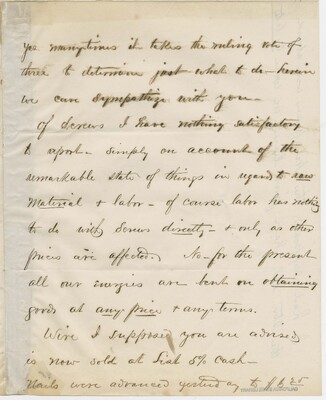 yes many times it takes the ruling vote of
three to determine just what to do - herein
we can sympathize with you -
of Screws I have nothing satisfactory
to report - simply on account of the
remarkable state of things in regard to raw
material & labor - of course labor has nothing
to do with Screws directly - & only as other
prices are affected. No - for the present
all our energies are bent on obtaining
goods at any price & any terms.
Wire I suppose you are advised
is now sold at List 5% cash -
Nails were advanced yesterday to